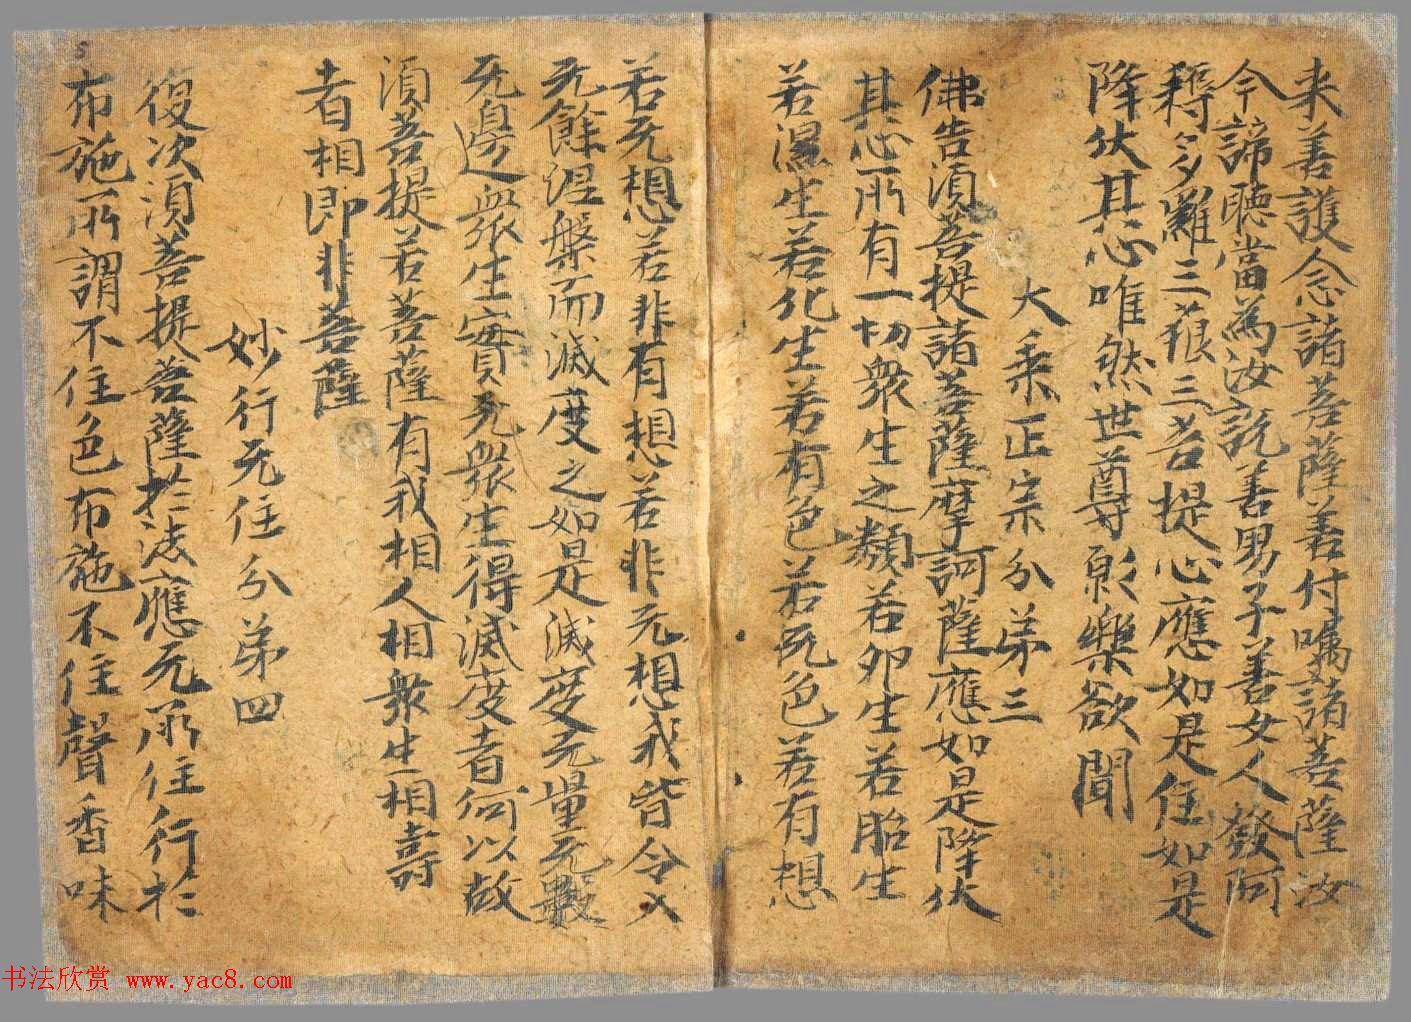 来善護念諸菩薩善付囑諸菩薩汝
今諦聽當為汝説善男子善女人發阿
耨多羅三藐三菩提心應如是住如是
降伏其心唯然世尊願樂欲聞
大乘正宗分弟三
佛告須菩提諸菩薩摩訶薩應如是降伏
其心所有一切衆生之類若卵生若胎生
若濕生若化生若有色若无色若有想
若无想若非有想若非无想我皆令入
无餘涅槃而滅度之如是滅度无量无數
无邊衆生實无衆生得滅度者何以故
須菩提若菩薩有我相人相衆生相壽
者相即非菩薩
妙行无住分弟四
復次須菩提菩薩於法應无所住行於
布施所謂不住色布施不住聲香味
5
书法欣赏 www.yac8.com